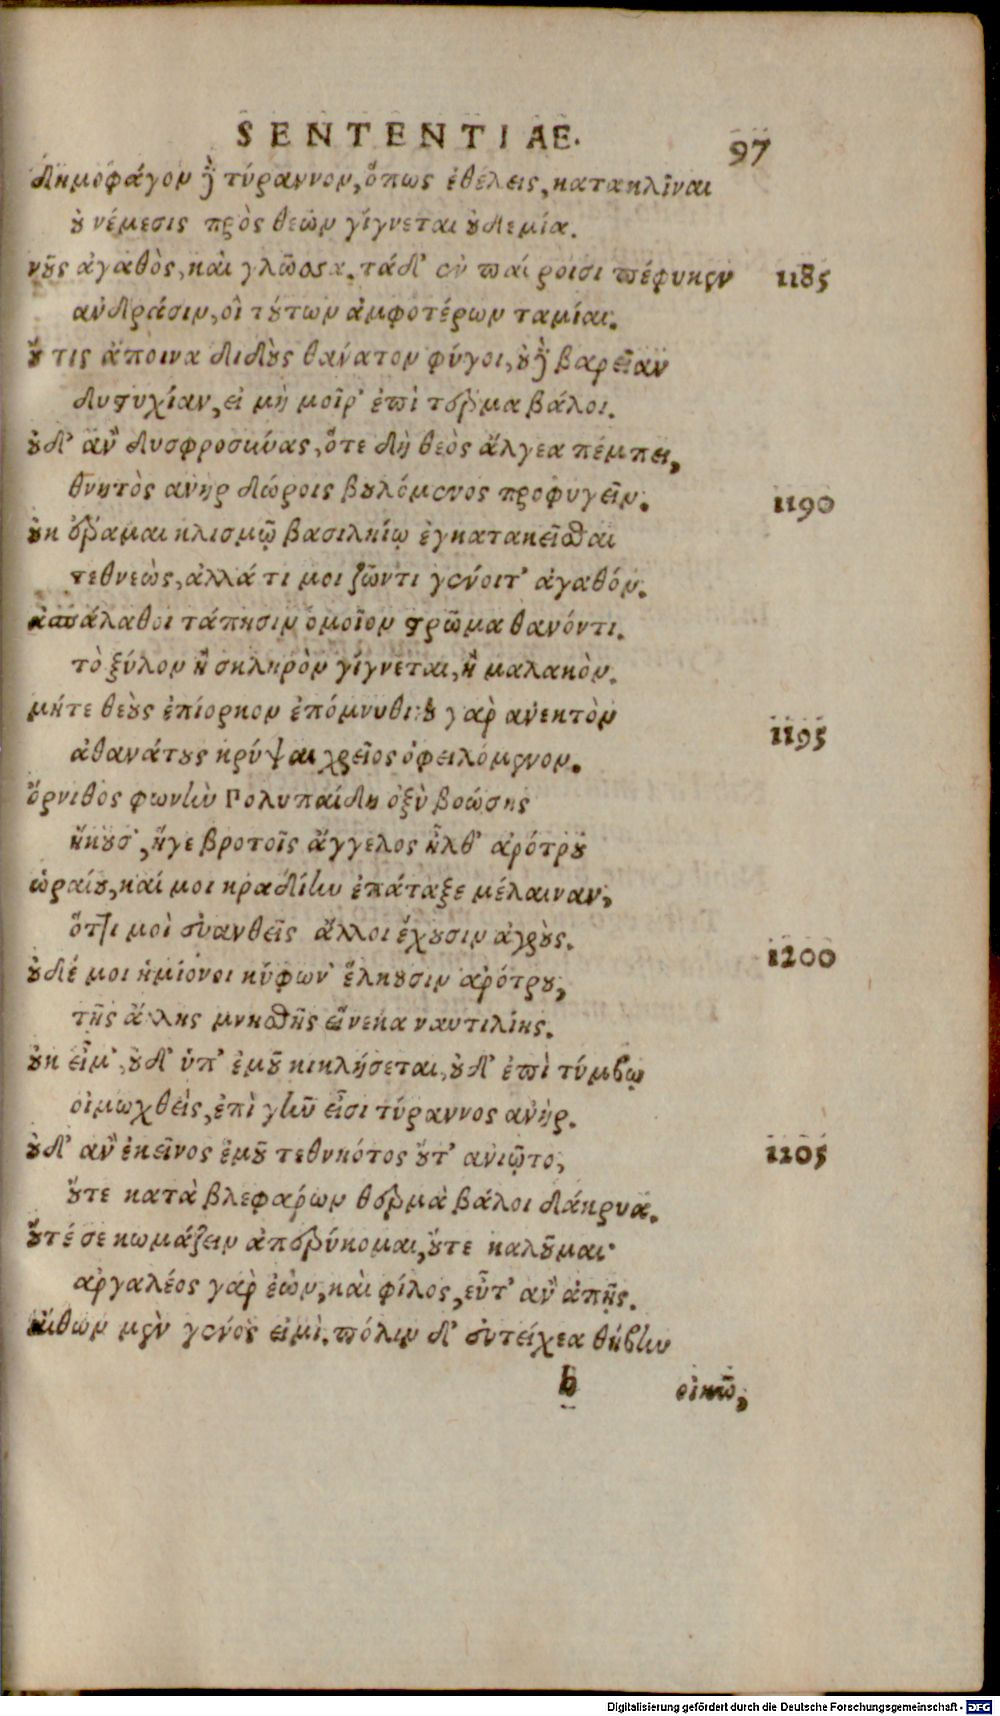 SENTENTIAE. 97
δημοφάγον ἢ τύραννον, ὅπως ἐθέλεις, κατακλῖναι
οὐ νέμεσις πρὸς θεῶν γίγνεται οὐδεμία.
νοῦς ἀγαθὸς, καὶ γλῶσσα. τάδ' ἐν παύροισι πέφυκεν 1185
ἀνδράσιν, οἳ τούτων ἀμφοτέρων ταμίαι.
οὔ τις ἄποινα διδοὺς θάνατον φύγοι, οὐδὲ βαρεῖαν
δυστυχίαν, εἰ μὴ μοῖρ' ἐπὶ τέρμα βάλοι.
οὐδ' ἂν δυσφροσύνας, ὅτε δὴ θεὸς ἄλγεα πέμπει,
θνητὸς ἀνὴρ δώροις βουλόμενος προφυγεῖν. 1190
οὐκ ἔραμαι κλισμῷ βασιληίῳ ἐγκατακεῖσθαι
τεθνεὼς, ἀλλά τι μοι ζῶντι γένοιτ' ἀγαθόν.
ἀσπάλαθοι τάπησιν ὁμοῖον στρῶμα θανόντι.
τὸ ξύλον ἢ σκληρὸν γίγνεται, ἢ μαλακὸν.
μήτε θεοὺς ἐπίορκον ἐπόμνυθι· οὐ γὰρ ἀνεκτὸν 1195
ἀθανάτους κρύψαι χρεῖος ὀφειλόμενον.
ὄρνιθος φωνὴν Πολυπαίδη ὀξὺ βοώσης
ἤκουσ', ἥγε βροτοῖς ἄγγελος ἦλθ' ἀρότρου
ὡραίου, καί μοι κραδίην ἐπάταξε μέλαιναν,
ὅττι μοὶ εὐανθεῖς ἄλλοι ἔχουσιν ἀγρούς. 1200
οὐδέ μοι ἡμίονοι κύφων' ἕλκουσιν ἀρότρου,
τῆς ἄλλης μνησθῆς εἵνεκα ναυτιλίης.
οὐκ εἶμ', οὐδ' ὑπ' ἐμοῦ κικλήσεται, οὐδ' ἐπὶ τύμβῳ
οἰμωχθεὶς, ἐπὶ γῆν εἶσι τύραννος ἀνήρ.
οὐδ' ἂν ἐκεῖνος ἐμοῦ τεθνηκότος οὔτ' ἀνιῷτο, 1205
οὔτε κατὰ βλεφάρων θερμὰ βάλοι δάκρυα.
οὔτέ σε κωμάζειν ἀπερύκομαι, οὔτε καλοῦμαι·
ἀργαλέος γὰρ ἐὼν, καὶ φίλος, εὖτ' ἂν ἀπῇς.
αἴθων μὲν γένος εἰμὶ. πόλιν δ' εὐτείχεα θήβην
b οἰκῶ,
Digitalisierung gefördert durch die Deutsche Forschungsgemeinschaft - DFG